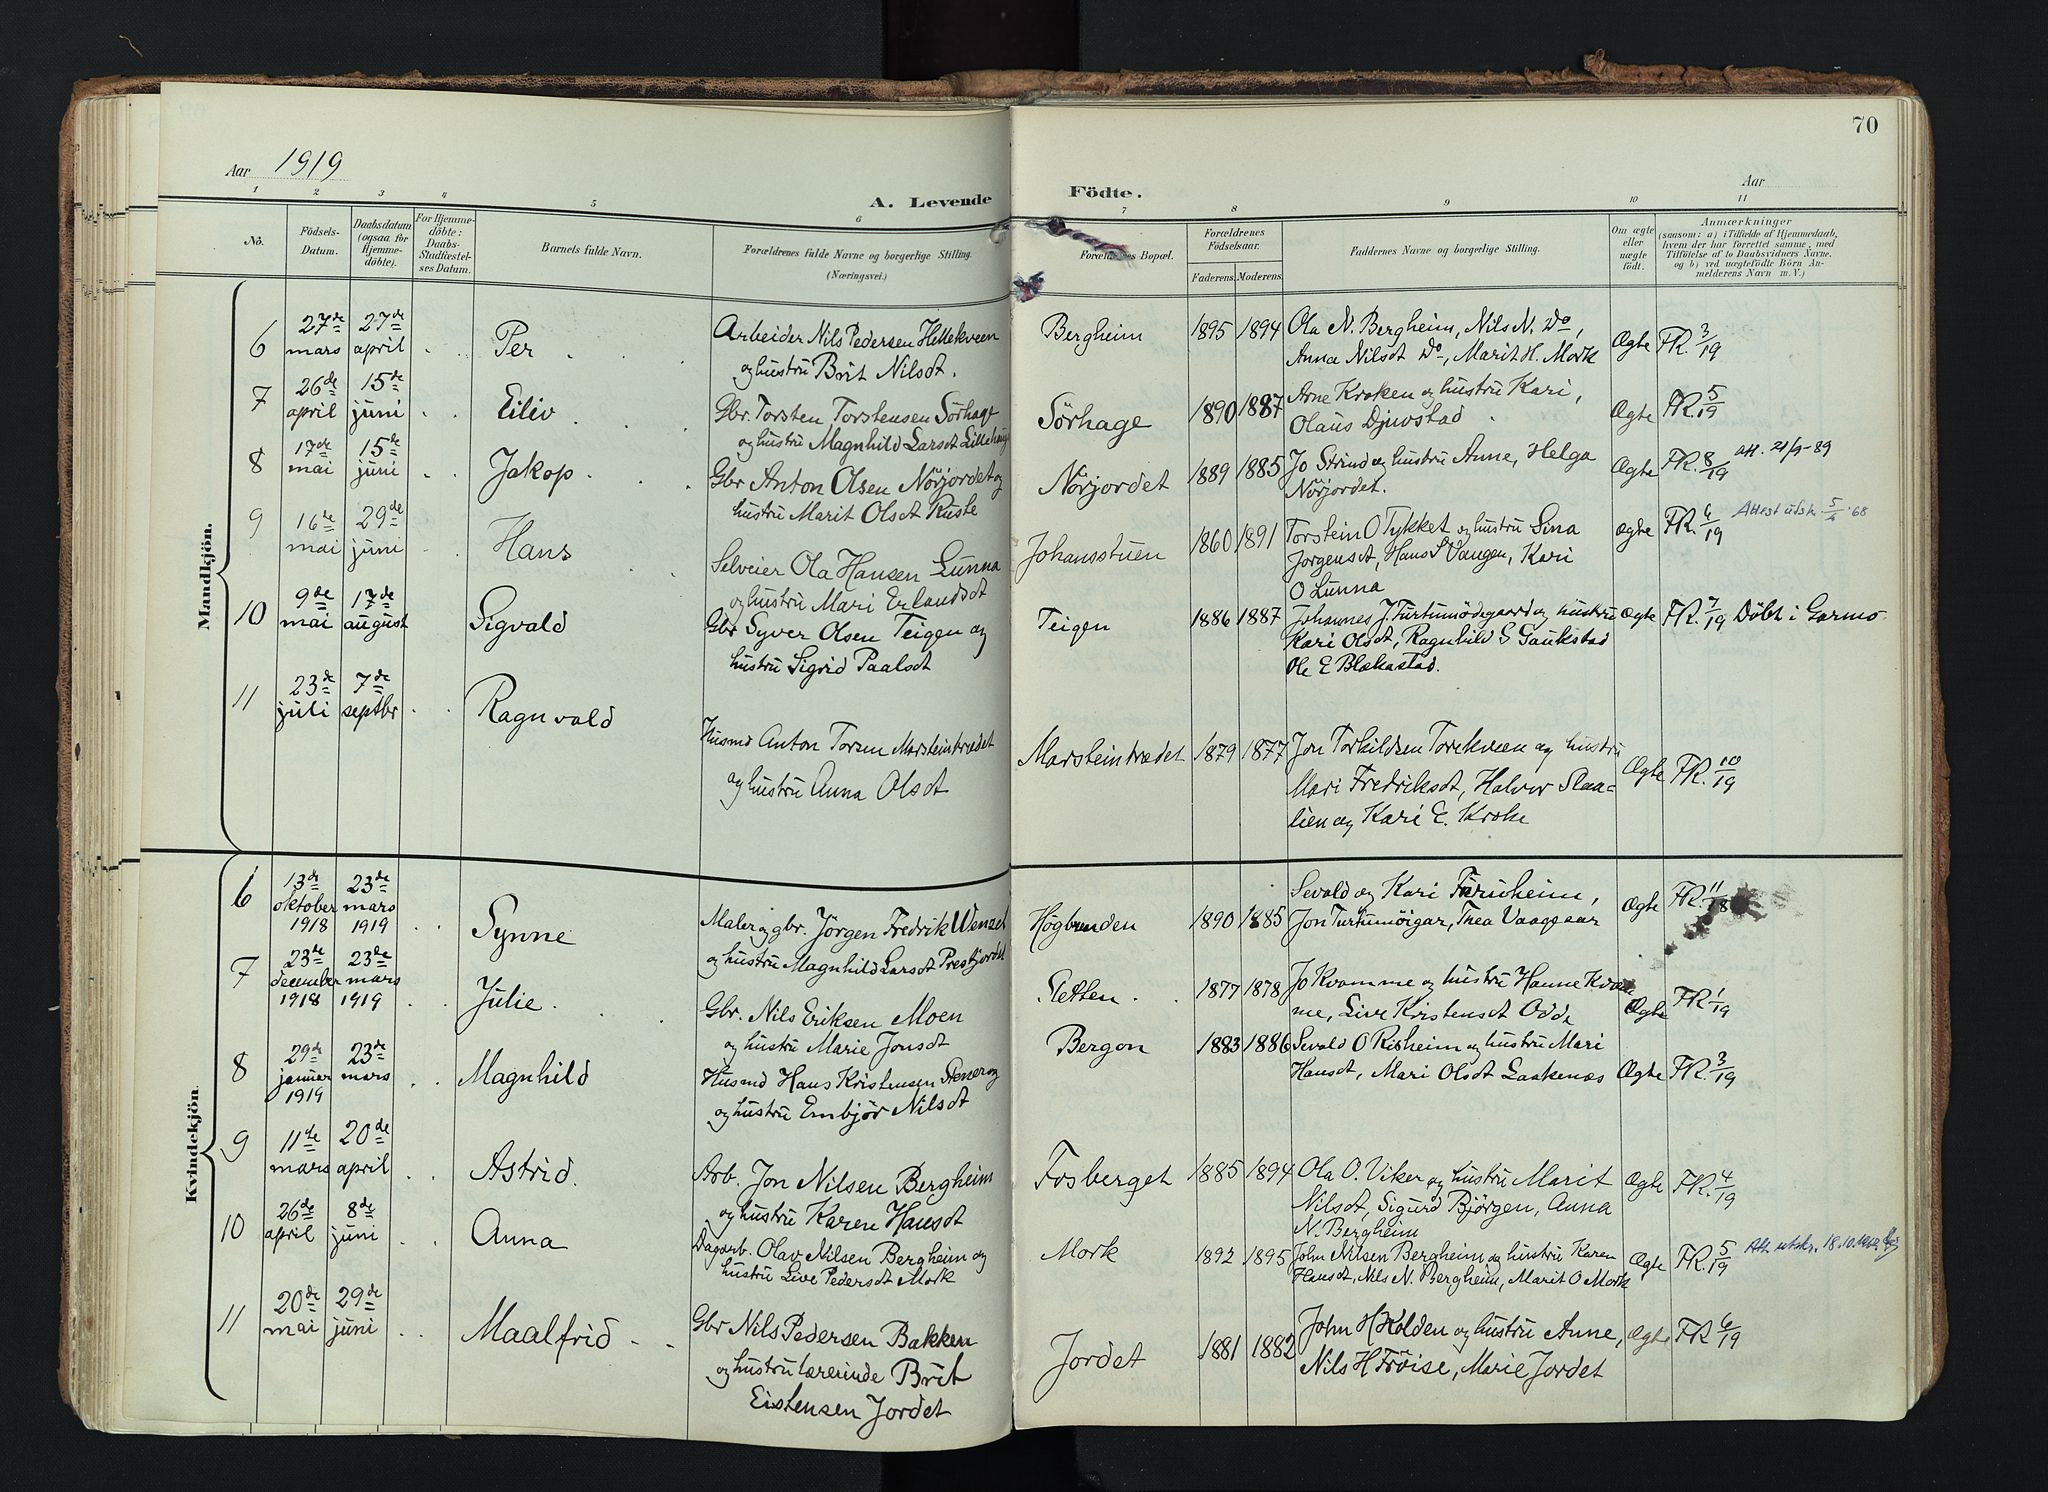 70
Aar 1919
Aar
A. Levende Födte.
1 2 3 4 5 6 7 8 9 10 11
Nö.
Födsels-Datum.
Daabsdatum (ogsaa for Hjemme-döbte).
For Hjemme-döbte: Daabs-Stadfæstel-ses Datum.
Barnets fulde Navn.
Forældrenes fulde Navne og borgerlige Stilling.
(Næringsvei.)
Forældrenes Bopæl.
Forældrenes Födselsaar.
Faderens. Moderens.
Faddernes Navne og borgerlige Stilling.
Om ægte eller uægte födt.
Anmærkninger
(saasom: a) i Tilfælde af Hjemmedaab, hvem der har forrettet samme, med Tilföielse af to Daabsvidners Navne, og b) ved uægtefödte Börn An-melderens Navn m. V.)
Mandkjön.
6 27de mars 27de april Per
Arbeider Nils Pedersen Hellekveen
og hustru Brit Nilsdt.
Bergheim 1895 1894
Ola N. Bergheim, Nils N. Do,
Anna Nilsdt Do, Marit H. Mork
Ægte FR. 3/19
7 26de april 15de juni Eiliv
Gbr. Torsten Torstensen Sörhage
og hustru Magnhild Larsdt Lillehaug
Sörhage 1890 1887
Arne Kroken og hustru Kari,
Olaus Djuvstad
Ægte FR. 5/19
8 17de mai 15de juni Jakop
Gbr Anton Olsen Nörjordet og
hustru Marit Olsdt Ruste
Nörjordet 1889 1885
Jo Strind og hustru Anne, Helga
Nörjordet.
Ægte FR. 8/19 att. 21/9-89
9 16de mai 29de juni Hans
Selveier Ola Hansen Lunna
og hustru Mari Erlandsdt
Johansstuen 1860 1891
Torstein O Tykket og hustru Sina
Jorgensdt, Hans S Vangen, Kari
O Lunna
Ægte FR. 6/19 Attest utskr. 5/4 68
10 9de mai 17de august Sigvald
Gbr Syver Olsen Teigen og
hustru Sigrid Paalsdt
Teigen 1886 1887
Johannes J. Turtumödegaard og hustru
Kari Olsdt, Ragnhild S Gaukstad
Ole E Blekastad.
Ægte FR. 7/19 Döbt i Garmo
11 23de juli 7de septbr Ragnvald
Husmd Anton Toresen Marsteintrædet
og hustru Anna Olsdt
Marsteintrædet 1879 1877
Jon Torkildsen Torekveen og hustru
Mari Fredriksdt, Halvor Slaa=
lien og Kari E. Kroke
Ægte FR. 10/19
Kvindekjön
6 13de oktober 1918 23de mars 1919 Synne
Maler og gbr. Jörgen Fredrik Wensel
og hustru Magnhild Larsdt Prestjordet
Högbrenden 1890 1885
Sevald og Kari Furuheim,
Jon Turtumöigar, Thea Vaagaaar
Ægte FR. 11/18
7 23de december 1918 23de mars 1919 Julie
Gbr. Nils Eriksen Moen
og hustru Marie Jonsdt
Sletten 1877 1878
Jo Kvamme og hustru Hanne Kvam
me, Live Kristensdt Odde
Ægte FR. 1/19
8 29de januar 1919 23de mars Magnhild
Husmd Hans Kristensen Stenerog
og hustru Embjör Nilsdt
Bergon 1883 1886
Sevald O Risheim og hustru Mari
Hansdt, Mari Olsdt Laakenæs
Ægte FR. 3/19
9 11de mars 20de april Astrid.
Arb. Jon Nilsen Bergheim
og hustru Karen Hansdt
Fosberget 1885 1894
Ola O. Viker og hustru Marit
Nilsdt, Sigurd Bjørgen, Anna
N. Bergheim
Ægte FR. 4/19
10 26de april 8de juni Anna
Dagarb. Olav Nilsen Bergheim og
hustru Live Pedersdt Mork
Mork 1892 1895
John Nilsen Bergheim og hustru Karen
Hansdt, Nils N. Bergheim, Marit O Mork
Ægte FR. 5/19 Att. utskr. 18.10.1962
11 20de mai 29de juni Maalfrid
Gbr Nils Pedersen Bakken
og hustru lærerinde Brit
Eistensen Jordet
Jordet 1881 1882
John H Kolden og hustru Anne,
Nils H Fröise, Marie Jordet
Ægte FR 6/19